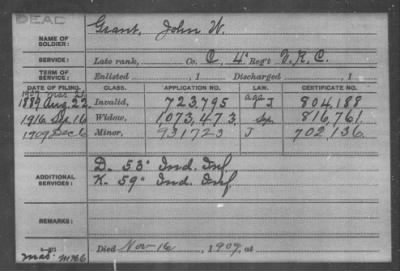 DEAC
NAME OF SOLDIER: Grant, John W.
SERVICE: Late rank, Co. C, 4" Reg't V.R.C.
TERM OF SERVICE: Enlisted , 1 Discharged , 1
DATE OF FILING. CLASS. APPLICATION NO. LAW. CERTIFICATE NO.
1889 Aug. 22 Invalid, 723,795 J 804,188
1916 Sep. 16 Widow, 1073,473 Sep. 816,761
1909 Dec. 6 Minor, 931723 J 702,136
ADDITIONAL SERVICES: D. 53" Ind. Inf.
K. 59" Ind. Inf.
REMARKS:
Died Nov-16, 1909, at